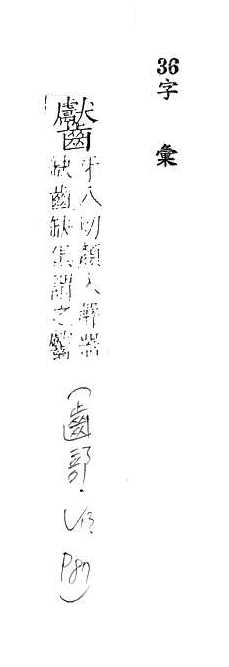 36字彙
齾
牛八切顏入聲器
缺齒缺俱謂之齾
(齒部.
P87)